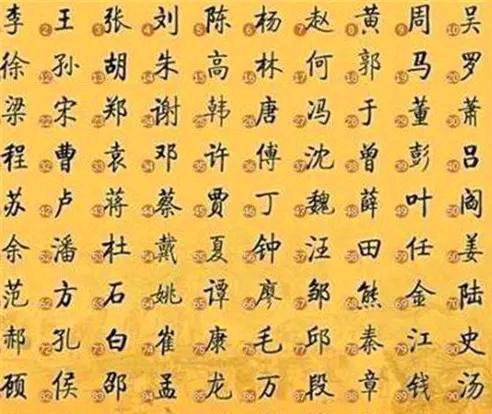 李 2 王 3 张 4 刘 5 陈 6 杨 7 赵 8 黄 9 周 10 吴
徐 12 孙 13 胡 14 朱 15 高 16 林 17 何 18 郭 19 马 20 罗
梁 22 宋 23 郑 24 谢 25 韩 26 唐 27 冯 28 于 29 董 30 萧
程 32 曹 33 袁 34 邓 35 许 36 傅 37 沈 38 曾 39 彭 40 吕
苏 42 卢 43 蒋 44 蔡 45 贾 46 丁 47 魏 48 薛 49 叶 50 阎
余 52 潘 53 杜 54 戴 55 夏 56 钟 57 汪 58 田 59 任 60 姜
范 62 方 63 石 64 姚 65 谭 66 廖 67 邹 68 熊 69 金 70 陆
郝 72 孔 73 白 74 崔 75 康 76 毛 77 邱 78 秦 79 江 80 史
82 侯 83 邵 84 孟 85 龙 86 万 87 段 88 章 89 钱 90 汤